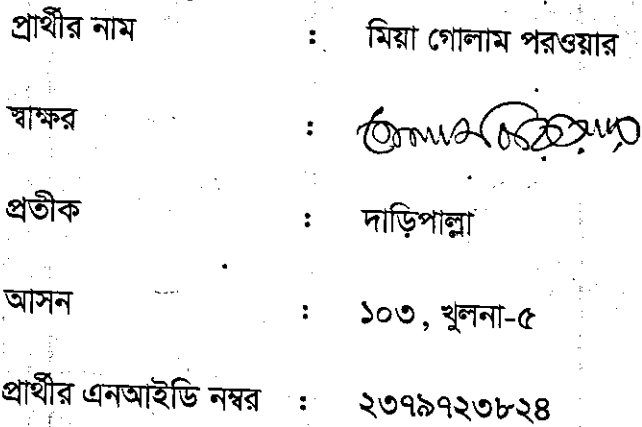 প্রার্থীর নাম : মিয়া গোলাম পরওয়ার
স্বাক্ষর :
প্রতীক : দাড়িপাল্লা
আসন : ১০৩, খুলনা-৫
প্রার্থীর এনআইডি নম্বর : ২৩৭৯৭২৩৮২৪